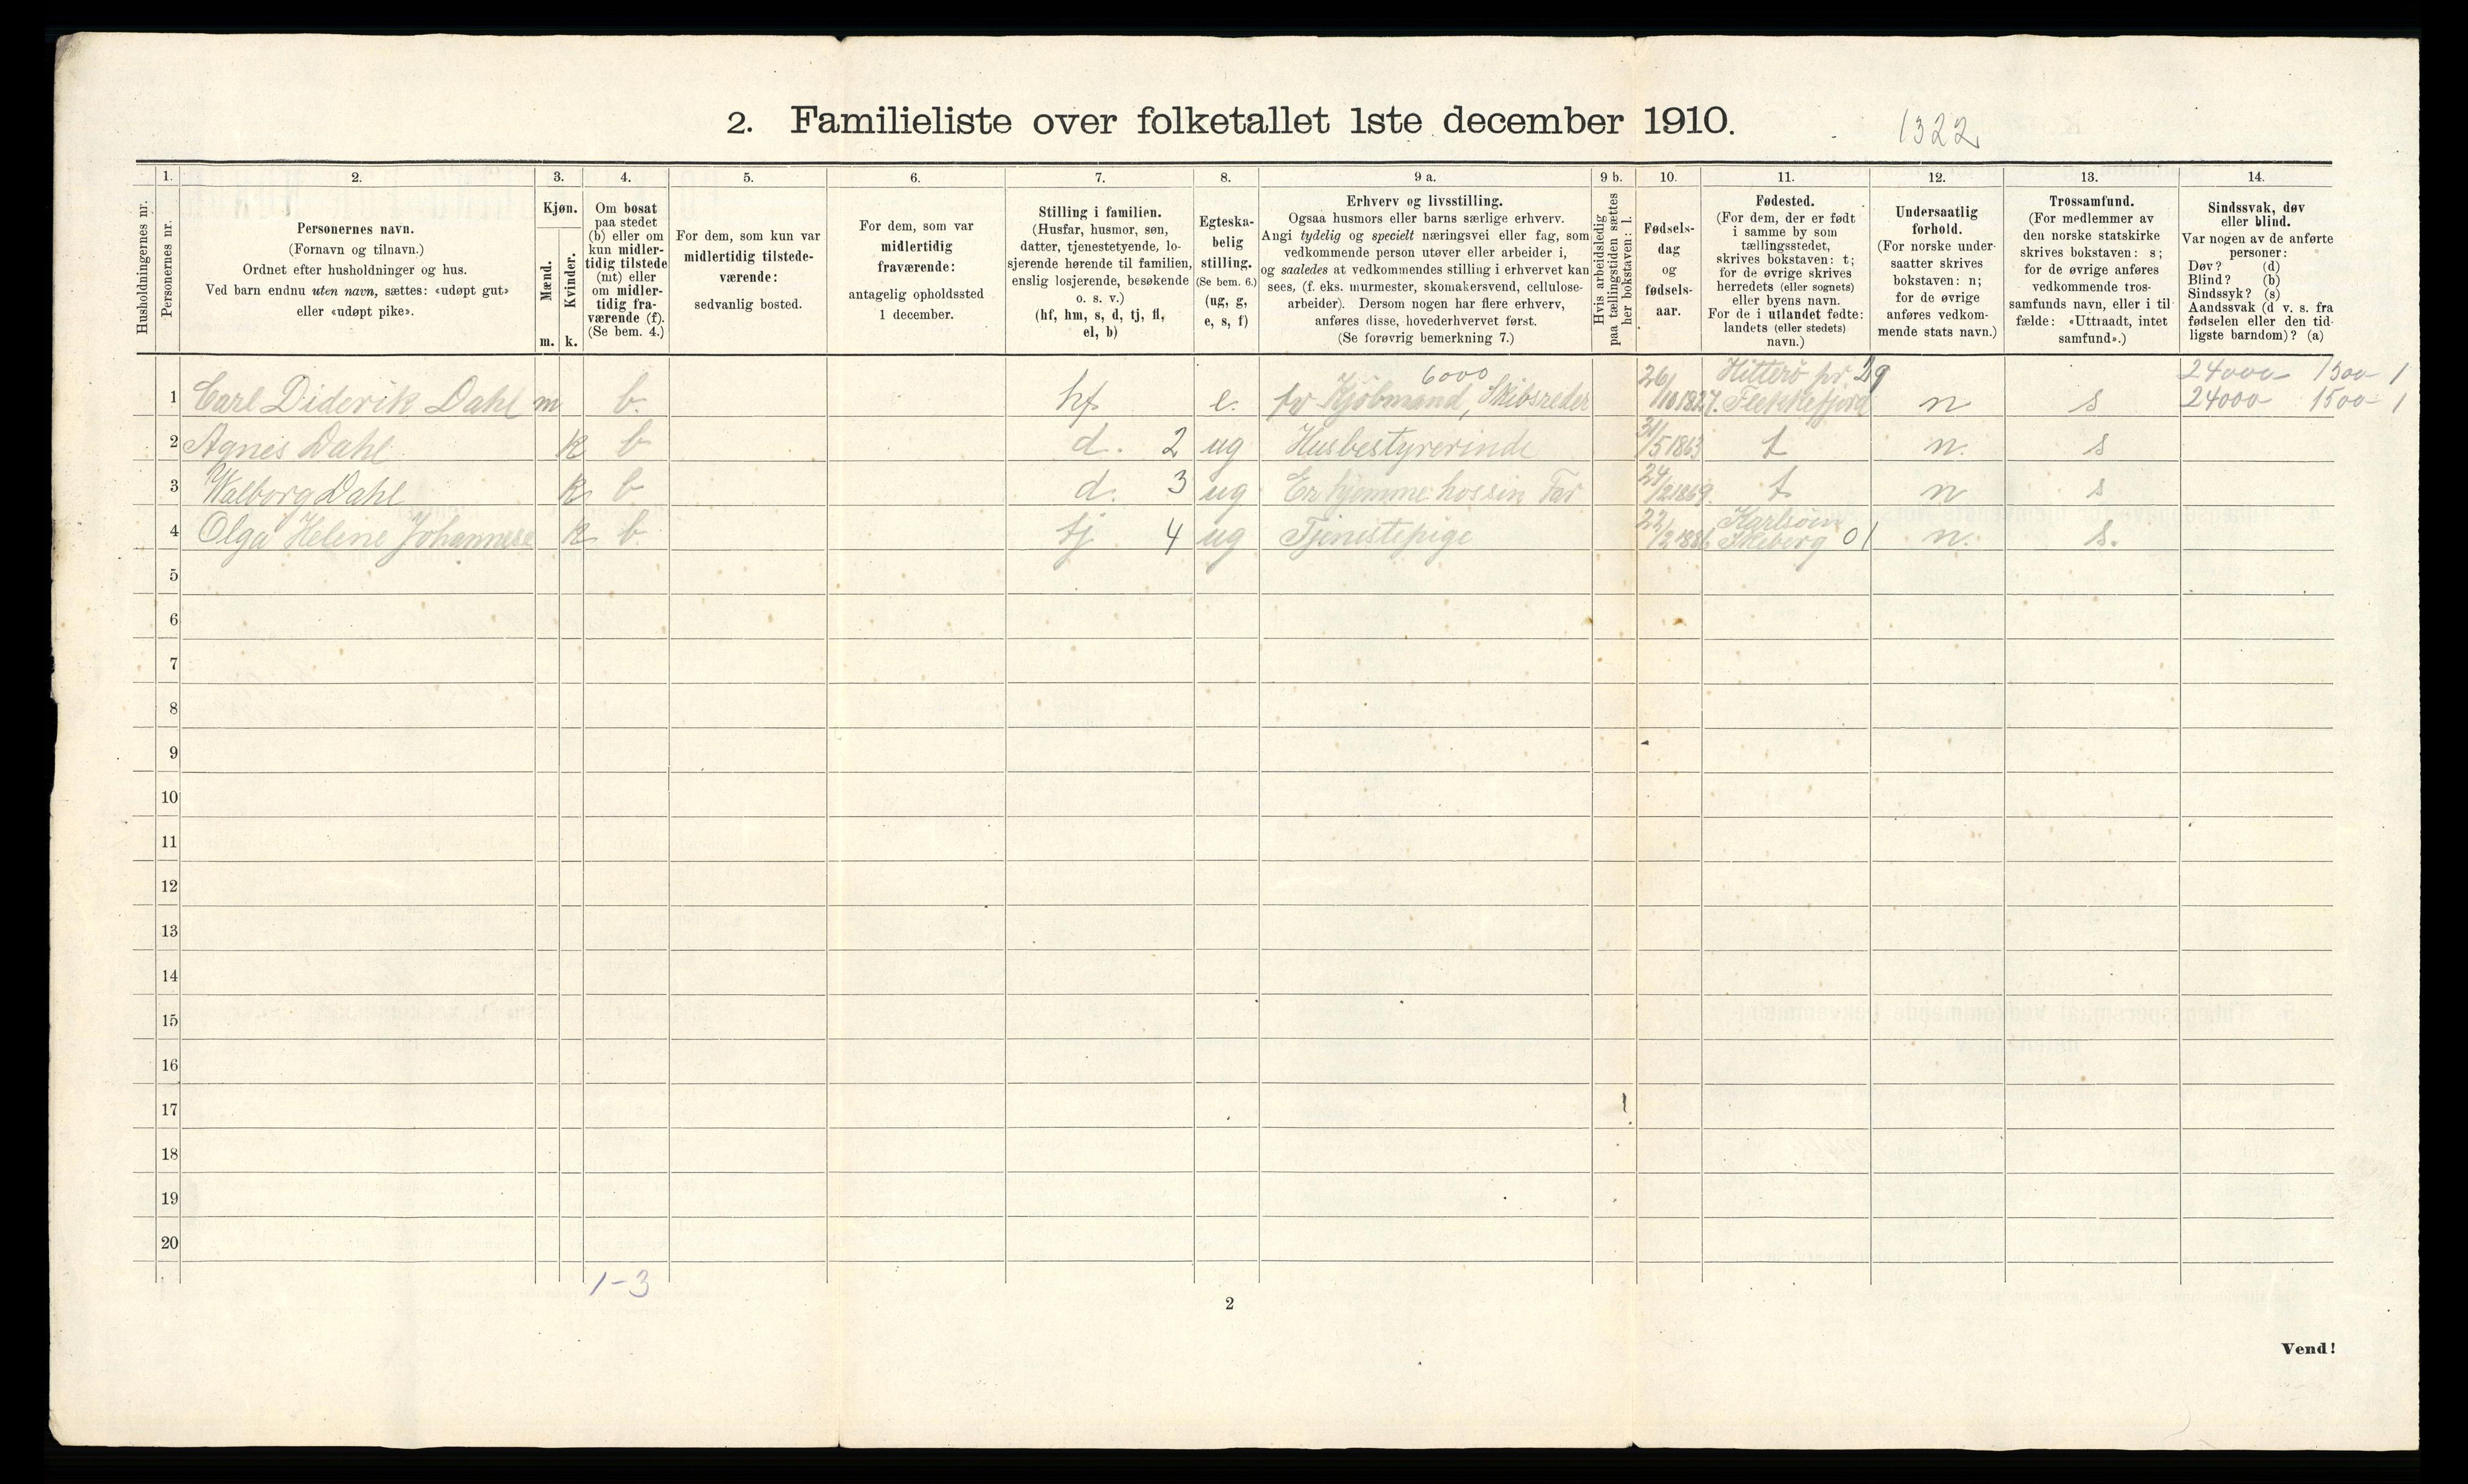 2. Familieliste over folketallet 1ste december 1910.
1322
Husholdningernes nr.
1.
Personernes nr.
2.
Personernes navn.
(Fornavn og tilnavn.)
Ordnet efter husholdninger og hus.
Ved barn endnu uten navn, sættes: «udøpt gut»
eller «udøpt pike».
3.
Kjøn.
Mænd.
Kvinder.
m. k.
4.
Om bosat
paa stedet
(b) eller om
kun midler-
tidig tilstede
(mt) eller
om midler-
tidig fra-
værende (f).
(Se bem. 4.)
5.
For dem, som kun var
midlertidig tilstede-
værende:
sedvanlig bosted.
6.
For dem, som var
midlertidig
fraværende:
antagelig opholdssted
1 december.
7.
Stilling i familien.
(Husfar, husmor, søn,
datter, tjenestetyende, lo-
sjerende hørende til familien,
enslig losjerende, besøkende
o. s. v.)
(hf, hm, s, d, tj, fl,
el, b)
8.
Egteska-
belig
stilling.
(Se bem. 6.)
(ug, g,
e, s, f)
9 a.
Erhverv og livsstilling.
Ogsaa husmors eller barns særlige erhverv.
Angi tydelig og specielt næringsvei eller fag, som
vedkommende person utøver eller arbeider i,
og saaledes at vedkommendes stilling i erhvervet kan
sees, (f. eks. murmester, skomakersvend, cellulose-
arbeider). Dersom nogen har flere erhverv,
anføres disse, hovederhvervet først.
(Se forøvrig bemerkning 7.)
9 b.
Hvis arbeidsledig
paa tællingstiden sættes
her bokstaven: l.
10.
Fødsels-
dag
og
fødsels-
aar.
11.
Fødested.
(For dem, der er født
i samme by som
tællingsstedet,
skrives bokstaven: t;
for de øvrige skrives
herredets (eller sognets)
eller byens navn.
For de i utlandet fødte:
landets (eller stedets)
navn.)
12.
Undersaatlig
forhold.
(For norske under-
saatter skrives
bokstaven: n;
for de øvrige
anføres vedkom-
mende stats navn.)
13.
Trossamfund.
(For medlemmer av
den norske statskirke
skrives bokstaven: s;
for de øvrige anføres
vedkommende tros-
samfunds navn, eller i til
fælde: «Uttraadt, intet
samfund».)
14.
Sindssvak, døv
eller blind.
Var nogen av de anførte
personer:
Døv? (d)
Blind? (b)
Sindssyk? (s)
Aandssvak (d v. s. fra
fødselen eller den tid-
ligste barndom)? (a)
6000 Hitterö pr. 29 24000 1500 1
1 Carl Diderik Dahl m b. hf e. fv Kjöbmand, Skibsreder 26/10 1827. Flekkefjord n s 24000 1500 1
2 Agnes Dahl k b d. 2 ug Husbestyrerinde 31/5 1863 t n. s
3 Walborg Dahl k b d. 3 ug Er hjemme hos sin Far 24/2 1869. t n s
4 Olga Helene Johannese k b. tj 4 ug Tjenestepige 22/2 1886 Karlsöen Skeberg 01 n. s.
5
6
7
8
9
10
11
12
13
14
15
16
17
18
19
20
1-3
2
Vend!